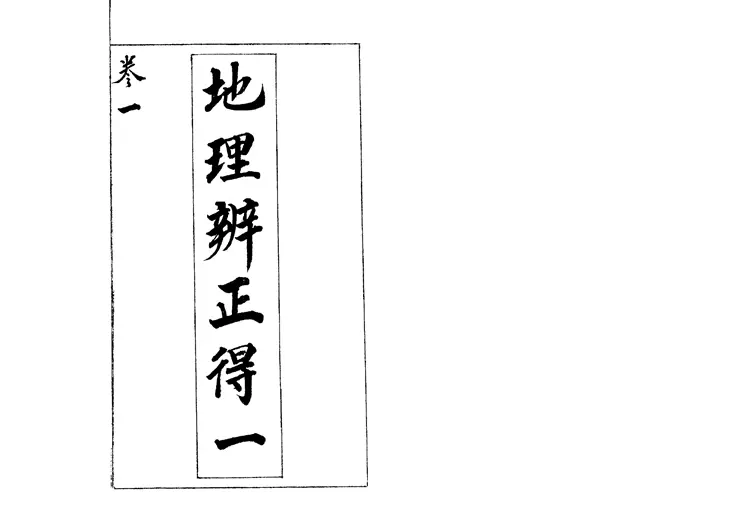 地理辨正得一
卷一